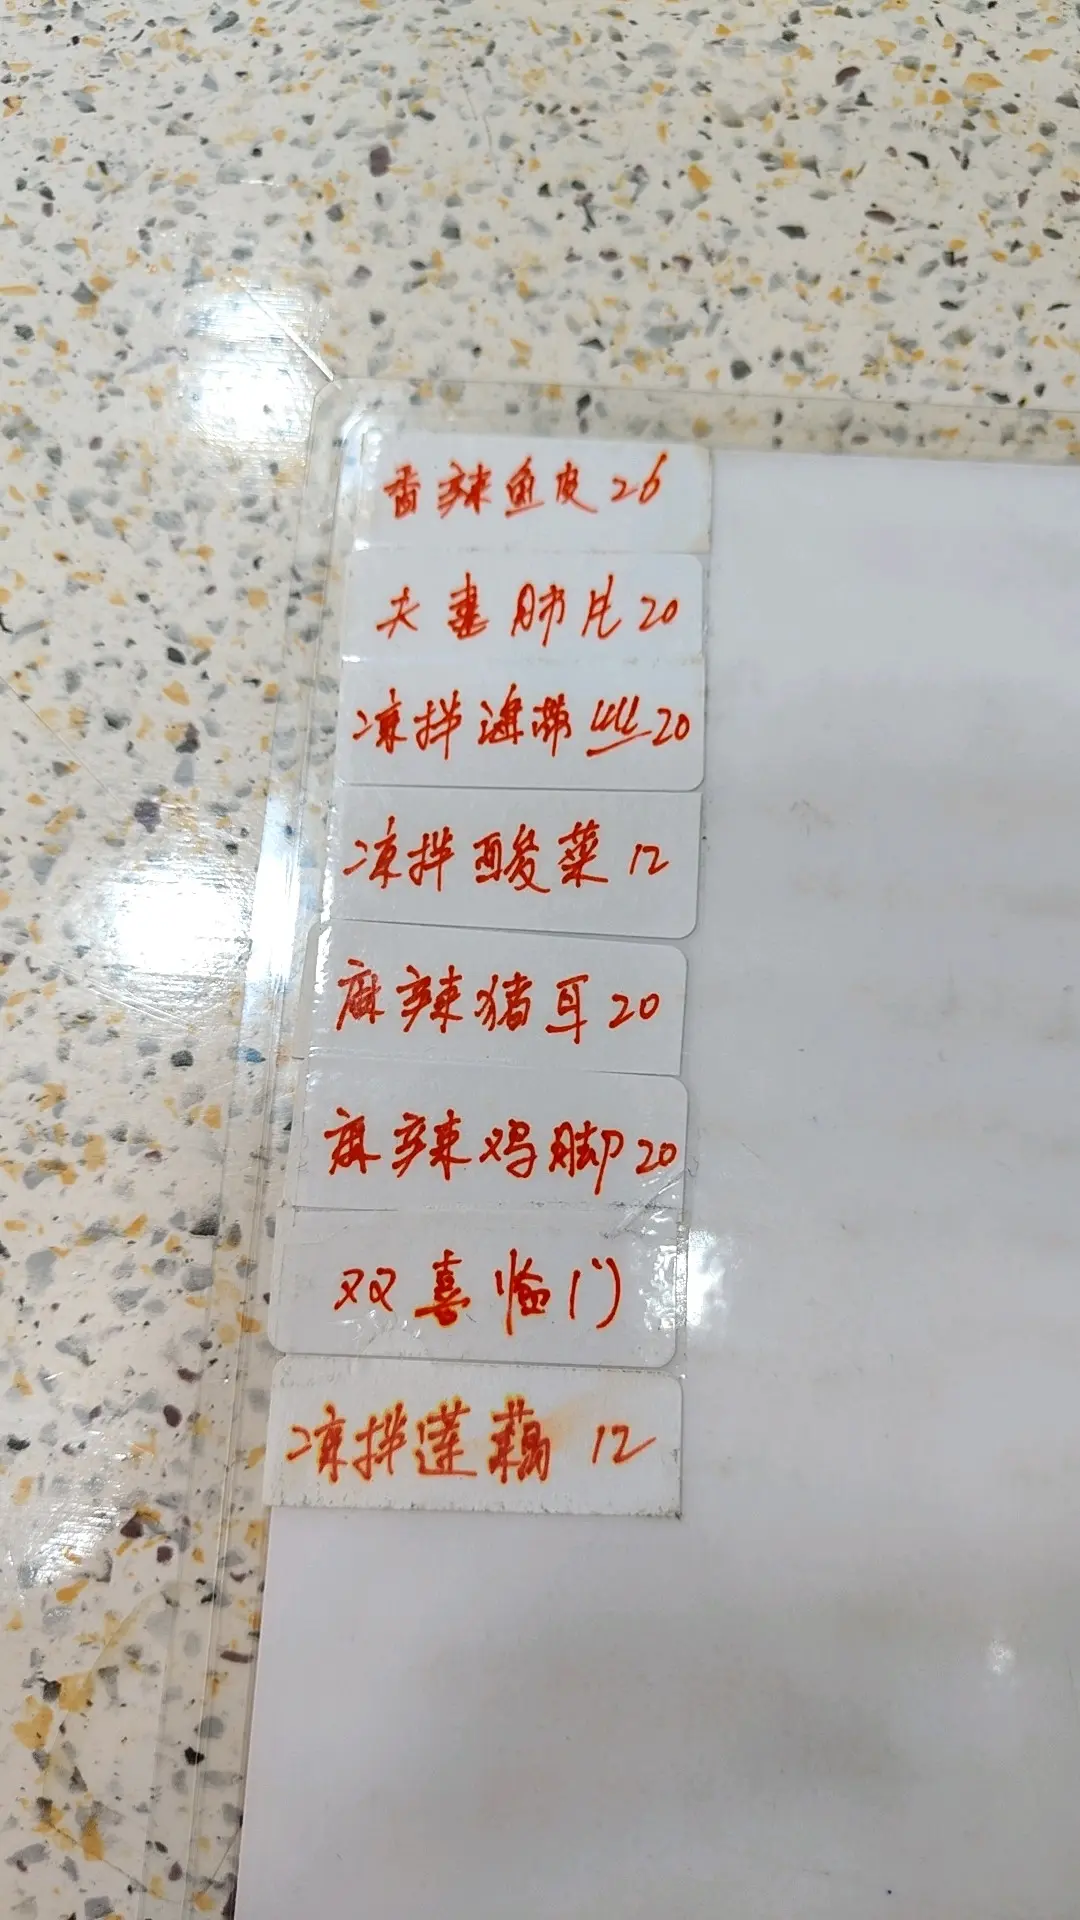 香辣鱼皮 26
夫妻肺片 20
凉拌海带丝 20
凉拌酸菜 12
麻辣猪耳 20
麻辣鸡脚 20
双喜临门
凉拌莲藕 12